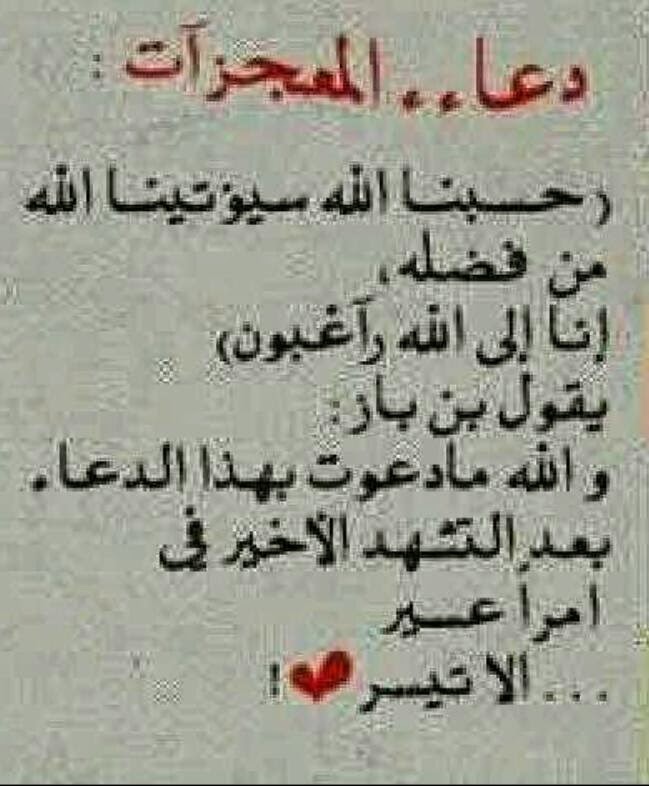 دعاء.. المعجزآت :
(حسبنا الله سيؤتينا الله
من فضله،
إنا إلى الله رآغبون)
يقول بن باز:
و الله مادعوت بهذا الدعاء
بعد التشهد الأخير في
امرأ عسير
... الا تيسر❤!